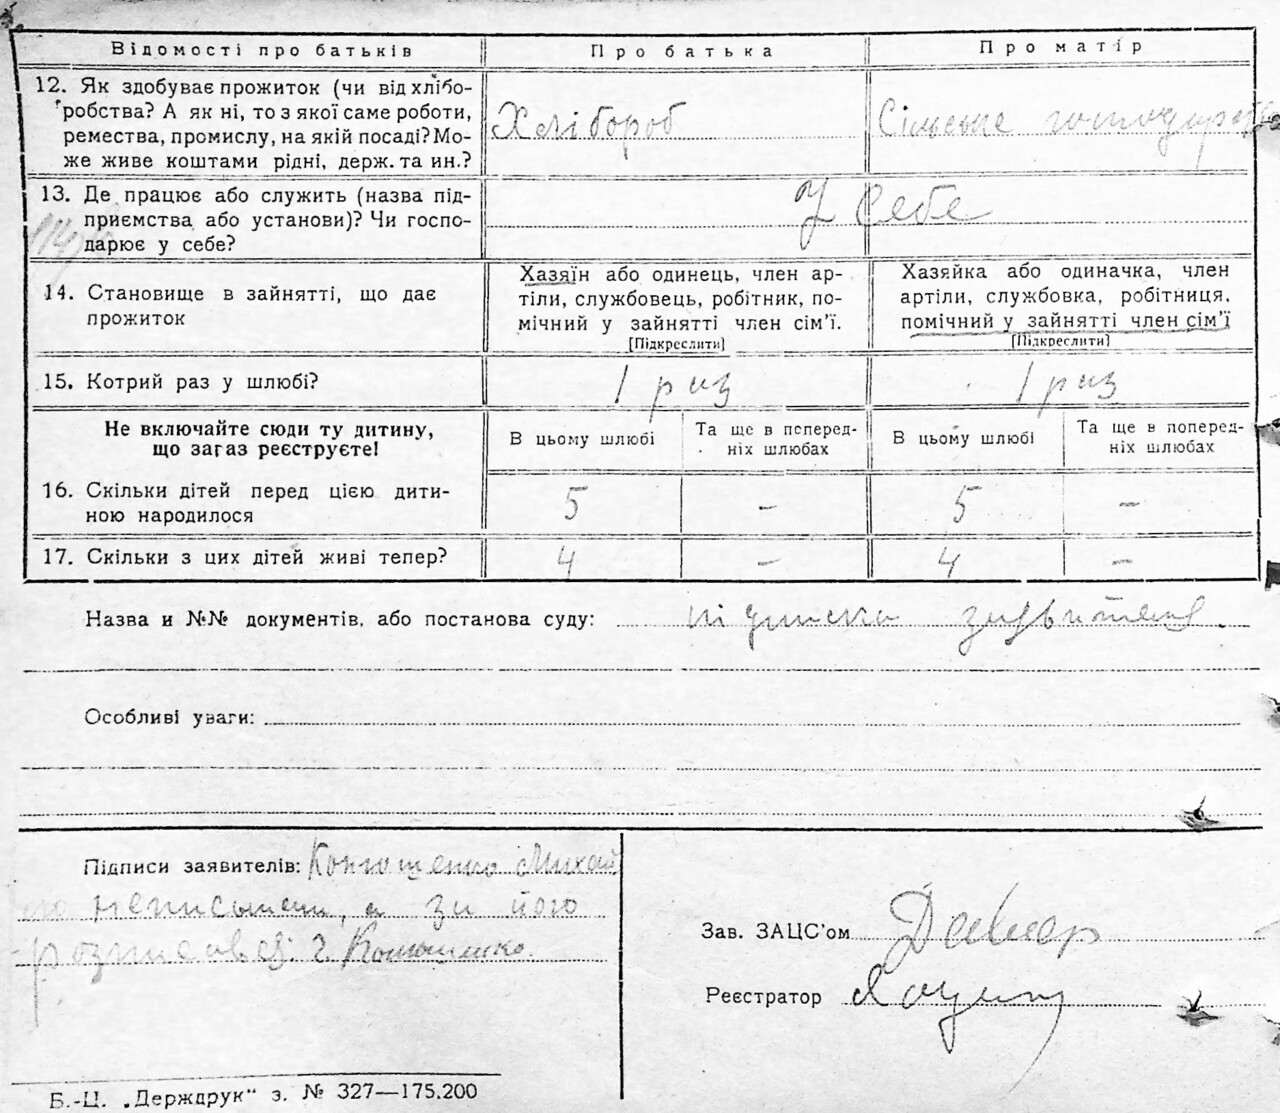 Відомості про батьків Про батька Про матір
12. Як здобуває прожиток (чи від хлібо-
робства? А як ні, то з якої саме роботи,
ремества, промислу, на якій посаді? Мо-
же живе коштами рідні, держ. та ин.?
Хлібороб Сільське господарство
13. Де працює або служить (назва під-
приємства або установи)? Чи госпо-
дарює у себе?
У себе
14. Становище в зайнятті, що дає
прожиток
Хазяїн або одинець, член ар-
тіли, службовець, робітник, по-
мічний у зайнятті член сім'ї.
[Підкреслити]
Хазяйка або одиначка, член
артіли, службовка, робітниця,
помічний у зайнятті член сім'ї
[Підкреслити]
15. Котрий раз у шлюбі? 1 раз 1 раз
Не включайте сюди ту дитину,
що загаз реєструєте!
В цьому шлюбі
Та ще в поперед-
ніх шлюбах
В цьому шлюбі
Та ще в поперед-
ніх шлюбах
16. Скільки дітей перед цією дити-
ною народилося
5 – 5 –
17. Скільки з цих дітей живі тепер? 4 – 4 –
Назва и №№ документів, або постанова суду:
Особливі уваги:
Підписи заявителів: Михай
ло неписьмен, а за його
розписавсь г.
Зав. ЗАЦС'ом
Реєстратор
Б.-Ц. „Держдрук" з. № 327—175.200